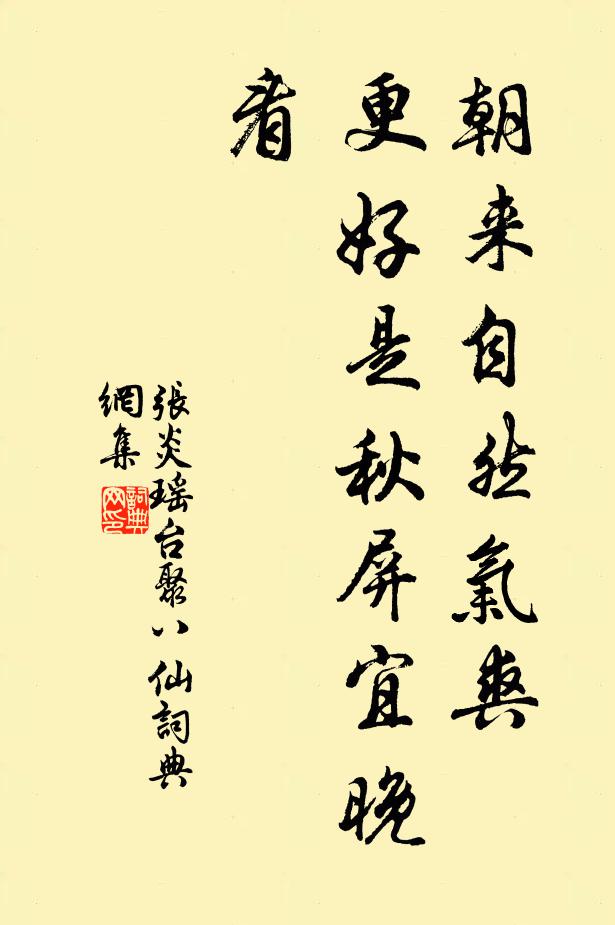 朝来自然氣爽
更好是秋屏宜晚
看
張炎瑶台聚八仙詞典
網集
詞典
网印